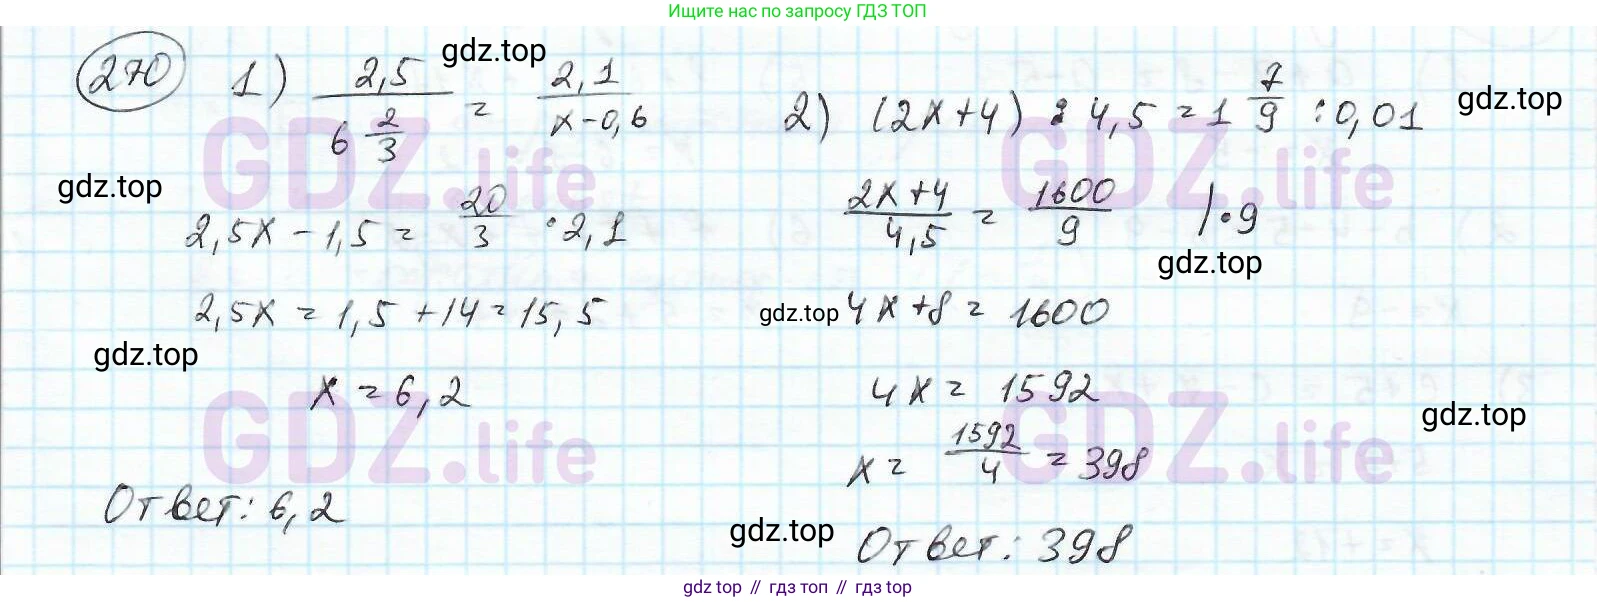 Ищите нас по запросу ГДЗ ТОП
270
1) 2,5 / 6 2/3 = 2,1 / x-0,6
2,5x - 1,5 = 20/3 · 2,1
2,5x = 1,5 + 14 = 15,5
x = 6,2
Ответ: 6,2
2) (2x+4) : 4,5 = 1 7/9 : 0,01
2x+4 / 4,5 = 1600/9 | · 9
4x + 8 = 1600
4x = 1592
x = 1592/4 = 398
Ответ: 398
gdz.top
gdz.top
gdz.top
gdz.top
gdz.top
gdz.top
gdz.top
gdz.top
GDZ.life
GDZ.life
GDZ.life
GDZ.life
gdz top // гдз топ // гдз top